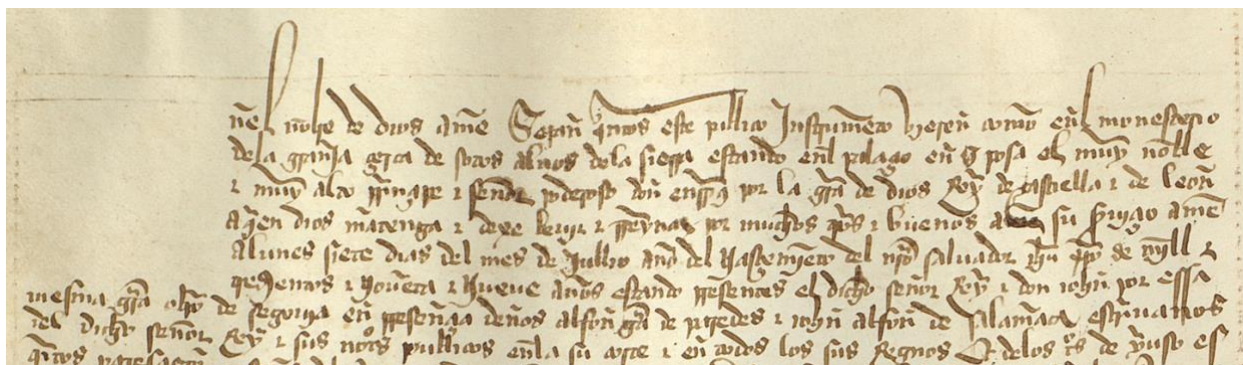 En el nonbre de dios ame Sepan quantos este publico Instrumento vieren como en el monesterio
de la granja çerca de sotos aluos de la sierra estando en el palaçio en que posa el muy noble
e muy alto prinçipe e señor poderoso don enrrique por la graçia de dios Rey de castiella e de leon
a quien dios mantenga e dexe beuir e rreynar por muchos e buenos a su seruiçio ame
a lunes siete dias del mes de Jullio año del nasçemiento del nuestro saluador ihu xpo de mill e
quatroçientos e nouenta e nueue años estando presentes el dicho señor Rey e don iohn por essa
mesma graçia obispo de segouia en presençia de nos alfon garcia de paredes e iohn alfon de salamanca escriuanos
del dicho señor Rey e sus notarios publicos en la su corte e en todos los sus Regnos e de los testigos de yuso es